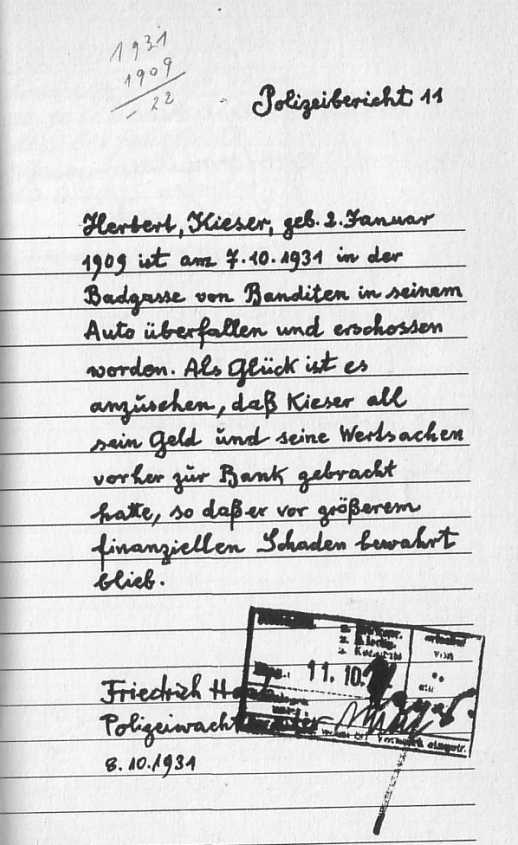 1931
1909
- 22
Polizeibericht 11
Herbert, Kieser, geb. 2. Januar
1909 ist am 7.10.1931 in der
Badgasse von Banditen in seinem
Auto überfallen und erschossen
worden. Als Glück ist es
anzusehen, daß Kieser all
sein Geld und seine Wertsachen
vorher zur Bank gebracht
hatte, so daß er vor größerem
finanziellen Schaden bewahrt
blieb.
11. 10.
von
Friedrich
Polizeiwachtmeister
8.10.1931